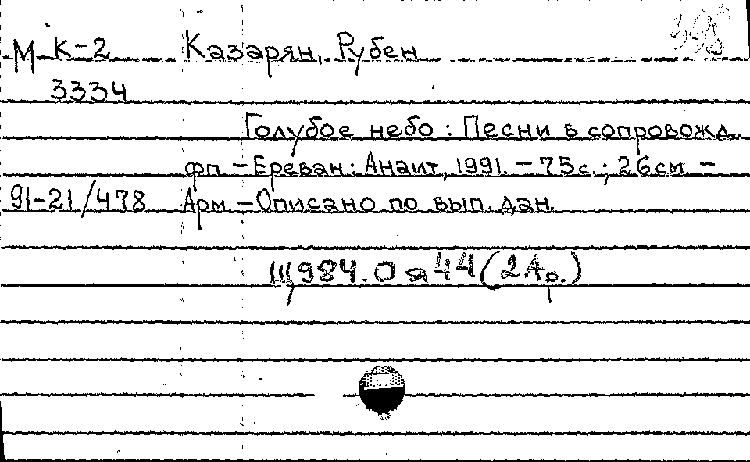 М К-2 Казарян, Рубен
3334
Голубое небо: Песни в сопровожд.
фп. – Ереван: Анаит, 1991. – 75с.; 26см –
91-21/478 Арм – Описано по вып. дан.
Щ984.0я44(2Ар.)